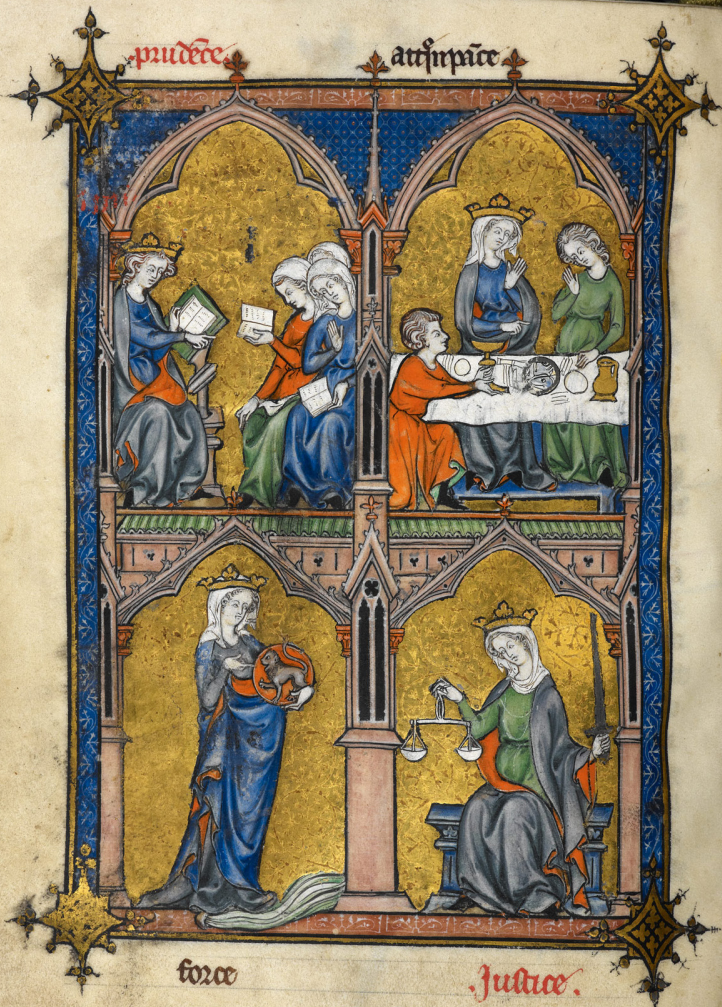 .prudēce.
attēpāce
force
.Justice.